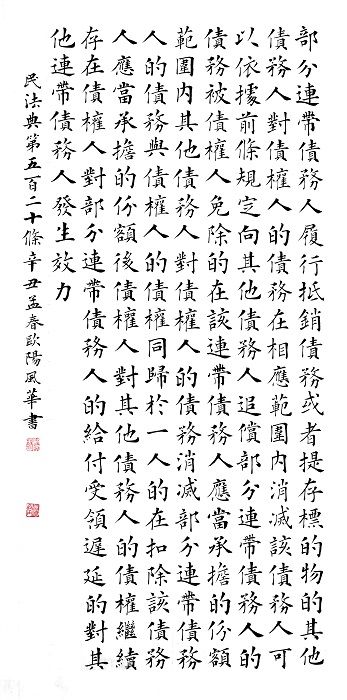 部分連帶債務人履行抵銷債務或者提存標的物的其他
債務人對債權人的債務在相應範圍內消滅該債務人可
以依據前條規定向其他債務人追償部分連帶債務人的
債務被債權人免除的在該連帶債務人應當承擔的份額
範圍內其他債務人對債權人的債務消滅部分連帶債務
人的債務與債權人的債權同歸於一人的在扣除該債務
人應當承擔的份額後債權人對其他債務人的債權繼續
存在債權人對部分連帶債務人的給付受領遲延的對其
他連帶債務人發生效力
民法典第五百二十條辛丑孟春歐陽風華書